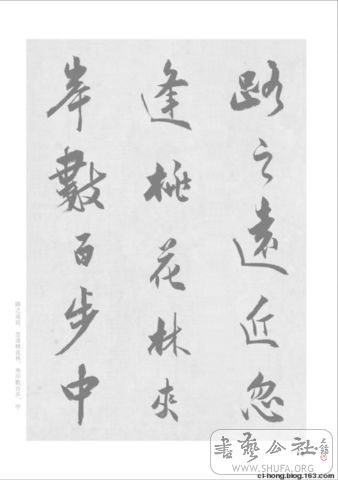 路之遠近忽
逢桃花林夾
岸數百步中
路之遠近。忽逢桃花林，夾岸數百步，中
書藝公社
WWW.SHUFA.ORG
ci-hong.blog.163.com